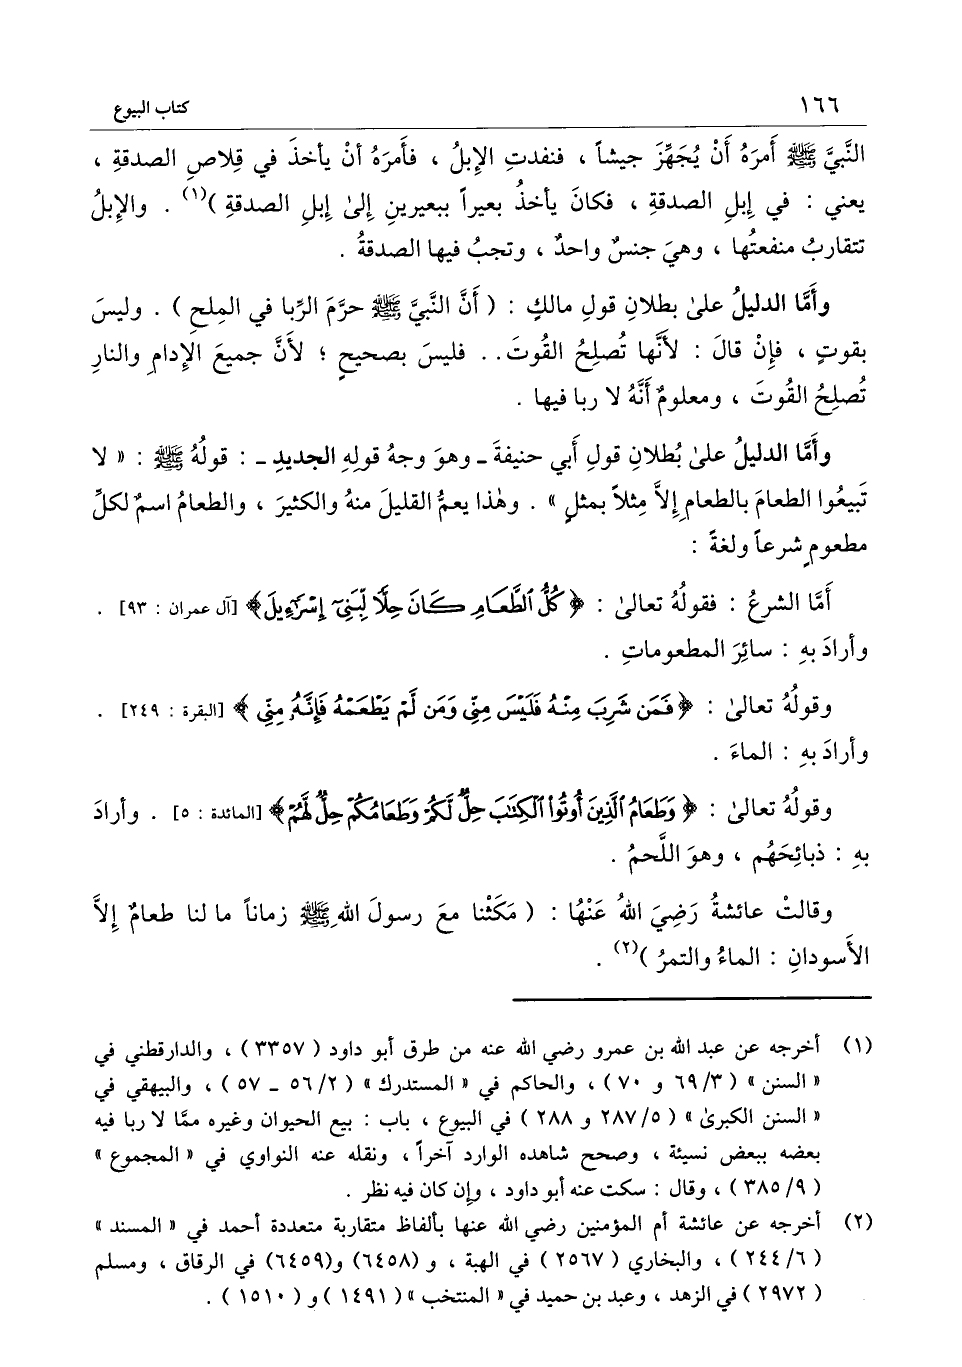 ١٦٦ كتاب البيوع
النَّبيَّ ﷺ أَمرَهُ أَنْ يُجَهِّزَ جيشاً ، فنفدتِ الإِبلُ ، فأَمرَهُ أنْ يأخذَ في قِلاصِ الصدقةِ ،
يعني : في إِبلِ الصدقةِ ، فكانَ يأخذُ بعيراً ببعيرينِ إِلىٰ إِبلِ الصدقةِ )(١) . والإِبلُ
تتقاربُ منفعتُها ، وهيَ جنسٌ واحدٌ ، وتجبُ فيها الصدقةُ .
وأَمَّا الدليلُ علىٰ بطلانِ قولِ مالكٍ : ( أَنَّ النَّبيَّ ﷺ حرَّمَ الرِّبا في المِلحِ ) . وليسَ
بقوتٍ ، فإِنْ قالَ : لأَنَّها تُصلِحُ القُوتَ . . فليسَ بصحيحٍ ؛ لأَنَّ جميعَ الإِدامِ والنارِ
تُصلِحُ القُوتَ ، ومعلومٌ أَنَّهُ لا ربا فيها .
وأَمَّا الدليلُ علىٰ بُطلانِ قولِ أَبي حنيفةَ ـ وهوَ وجهُ قولِهِ الجديدِ ـ : قولُهُ ﷺ : « لا
تَبيعُوا الطعامَ بالطعامِ إِلاَّ مِثلاً بمثلٍ » . وهٰذا يعمُّ القليلَ منهُ والكثيرَ ، والطعامُ اسمٌ لكلِّ
مطعومٍ شرعاً ولغةً :
أمَّا الشرعُ : فقولُهُ تعالىٰ : ﴿ كُلُّ ٱلطَّعَامِ كَانَ حِلًّا لِّبَنِىٓ إِسْرَٰٓءِيلَ ﴾ [آل عمران : ٩٣] .
وأرادَ بهِ : سائِرَ المطعوماتِ .
وقولُهُ تعالىٰ : ﴿ فَمَن شَرِبَ مِنْهُ فَلَيْسَ مِنِّى وَمَن لَّمْ يَطْعَمْهُ فَإِنَّهُۥ مِنِّىٓ ﴾ [البقرة : ٢٤٩] .
وأرادَ بهِ : الماءَ .
وقولُهُ تعالىٰ : ﴿ وَطَعَامُ ٱلَّذِينَ أُوتُوا۟ ٱلْكِتَٰبَ حِلٌّ لَّكُمْ وَطَعَامُكُمْ حِلٌّ لَّهُمْ ﴾ [المائدة : ٥] . وأرادَ
بهِ : ذبائِحَهُم ، وهوَ اللَّحمُ .
وقالتْ عائشةُ رَضِيَ اللهُ عَنْهَا : ( مَكَثْنا معَ رسولَ اللهِ ﷺ زماناً ما لنا طعامٌ إِلاَّ
الأَسودانِ : الماءُ والتمرُ )(٢) .
(١) أخرجه عن عبد الله بن عمرو رضي الله عنه من طرق أبو داود ( ٣٣٥٧ ) ، والدارقطني في
« السنن » ( ٦٩/٣ و ٧٠ ) ، والحاكم في « المستدرك » ( ٥٦/٢ ـ ٥٧ ) ، والبيهقي في
« السنن الكبرىٰ » ( ٢٨٧/٥ و ٢٨٨ ) في البيوع ، باب : بيع الحيوان وغيره ممَّا لا ربا فيه
بعضه ببعض نسيئة ، وصحح شاهده الوارد آخراً ، ونقله عنه النواوي في « المجموع »
( ٣٨٥/٩ ) ، وقال : سكت عنه أبو داود ، وإن كان فيه نظر .
(٢) أخرجه عن عائشة أم المؤمنين رضي الله عنها بألفاظ متقاربة متعددة أحمد في « المسند »
( ٢٤٤/٦ ) ، والبخاري ( ٢٥٦٧ ) في الهبة ، و (٦٤٥٨) و(٦٤٥٩) في الرقاق ، ومسلم
( ٢٩٧٢ ) في الزهد ، وعبد بن حميد في « المنتخب » ( ١٤٩١ ) و ( ١٥١٠ ) .